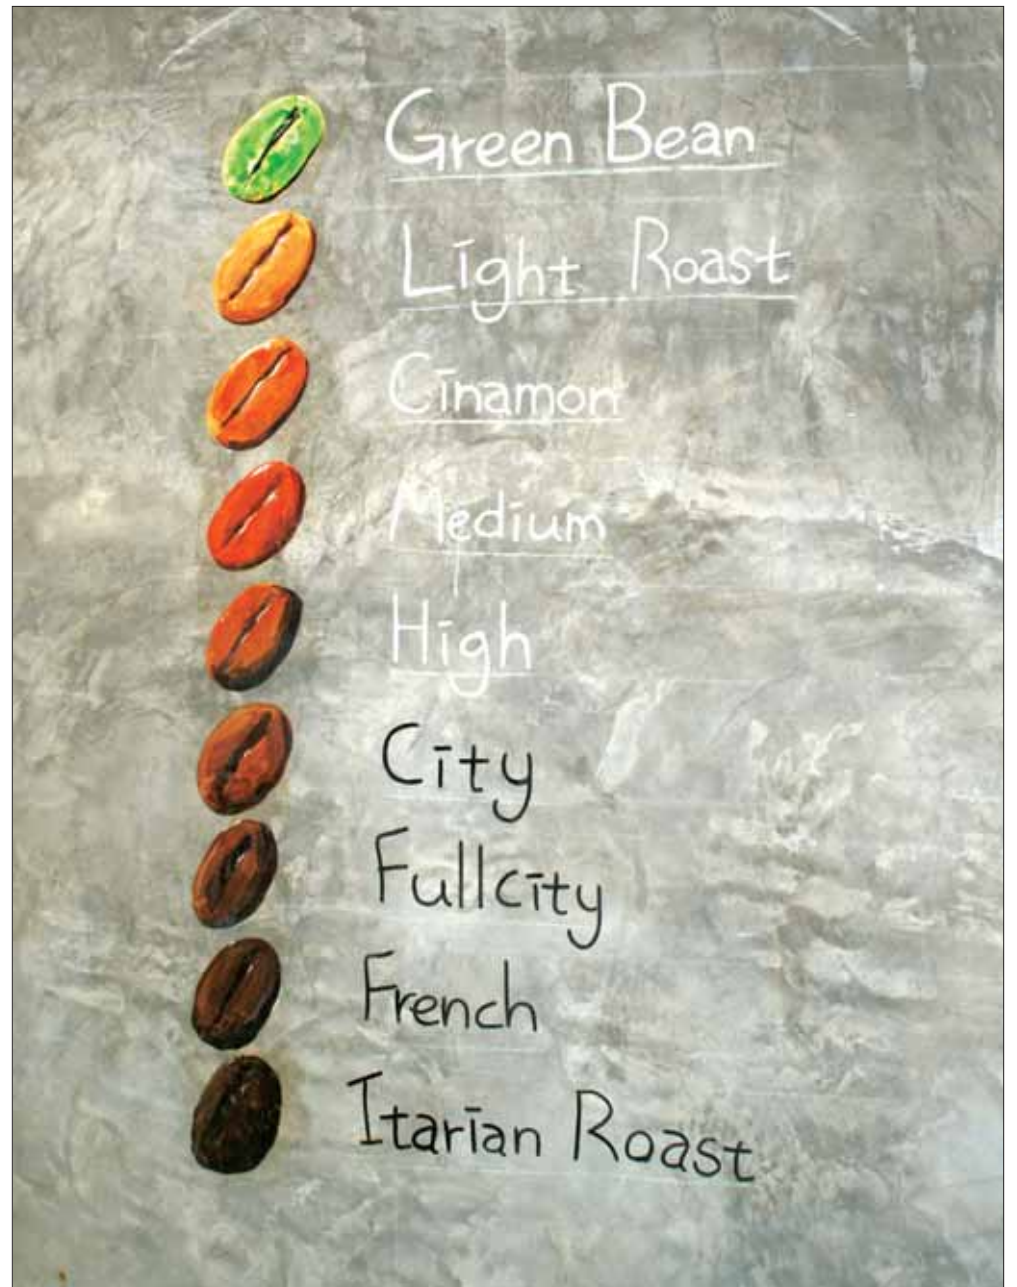 Green Bean
Light Roast
Cinamon
Medium
High
City
Fullcity
French
Itarian Roast